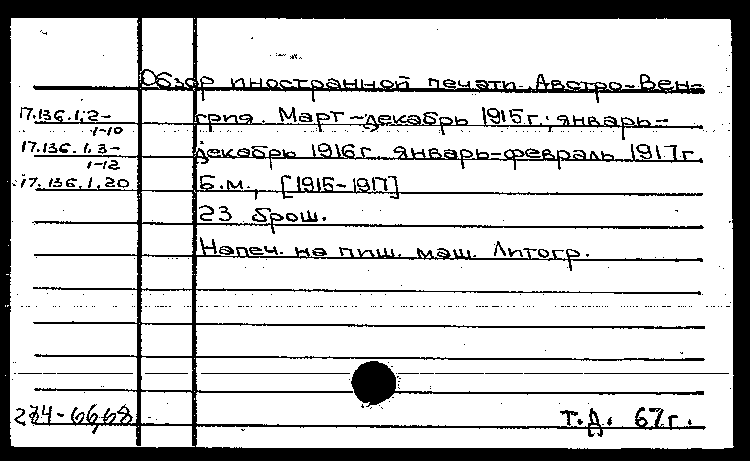 Обзор иностранной печати. Австро-Вен-
17.136.1.2-
1-10
грия. Март-декабрь 1915г.; январь-
17.136.1.3-
1-12
декабрь 1916г. январь-февраль 1917г.
17.136.1.20
Б.м., [1915-1917]
23 брош.
Напеч. на пиш. маш. Литогр.
284-66,68
Т.Д. 67г.